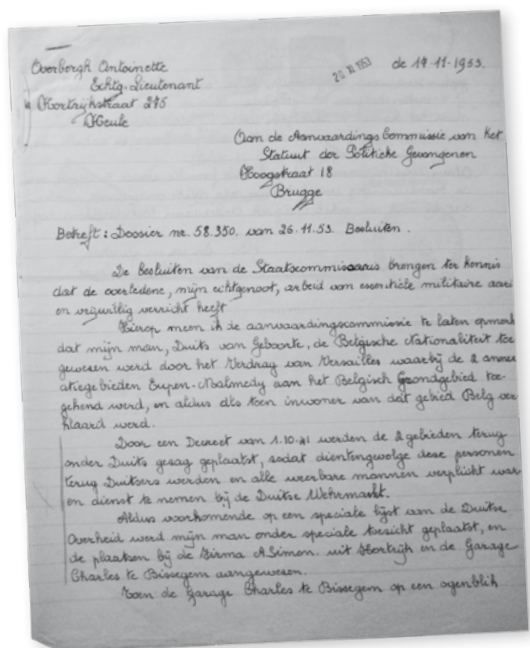 Overbergh Antoinette
Echtg. Lieutenant
Kortrijkstraat 245
Heule
20 XI 1953
de 19.11.1953.
Aan de Aanvaardings Commissie van het
Statuut der Politieke Gevangenen
Hoogstraat 18
Brugge
Betreft: Dossier nr. 58.350. van 26.11.53. Besluiten.
De besluiten van de Staatscommissaris brengen ter kennis
dat de overledene, mijn echtgenoot, arbeid van essentiele militaire aard
en vrijwillig verricht heeft
Hierop meen ik de aanvaardingscommissie te laten opmerk
dat mijn man, Duits van Geboorte, de Belgische Nationaliteit toe
gewezen werd door het Verdrag van Versailles waarbij de 2 annex
atiegebieden Eupen-Malmedy aan het Belgisch Grondgebied toe-
gekend werd, en aldus als toen inwoner van dat gebied Belg ver
klaard werd.
Door een Decreet van 1.10.41 werden de 2 gebieden terug
onder Duits gezag geplaatst, zodat dientengevolge deze personen
terug Duitsers werden en alle weerbare mannen verplicht war
en dienst te nemen bij de Duitse Wehrmacht.
Aldus voorkomende op een speciale lijst van de Duitse
Overheid werd mijn man onder speciale toezicht geplaatst, en
de plaatsen bij de Firma A Simon. uit Kortrijk en de Garage
Charles te Bissegem aangewezen.
Toen de Garage Charles te Bissegem op een ogenblik